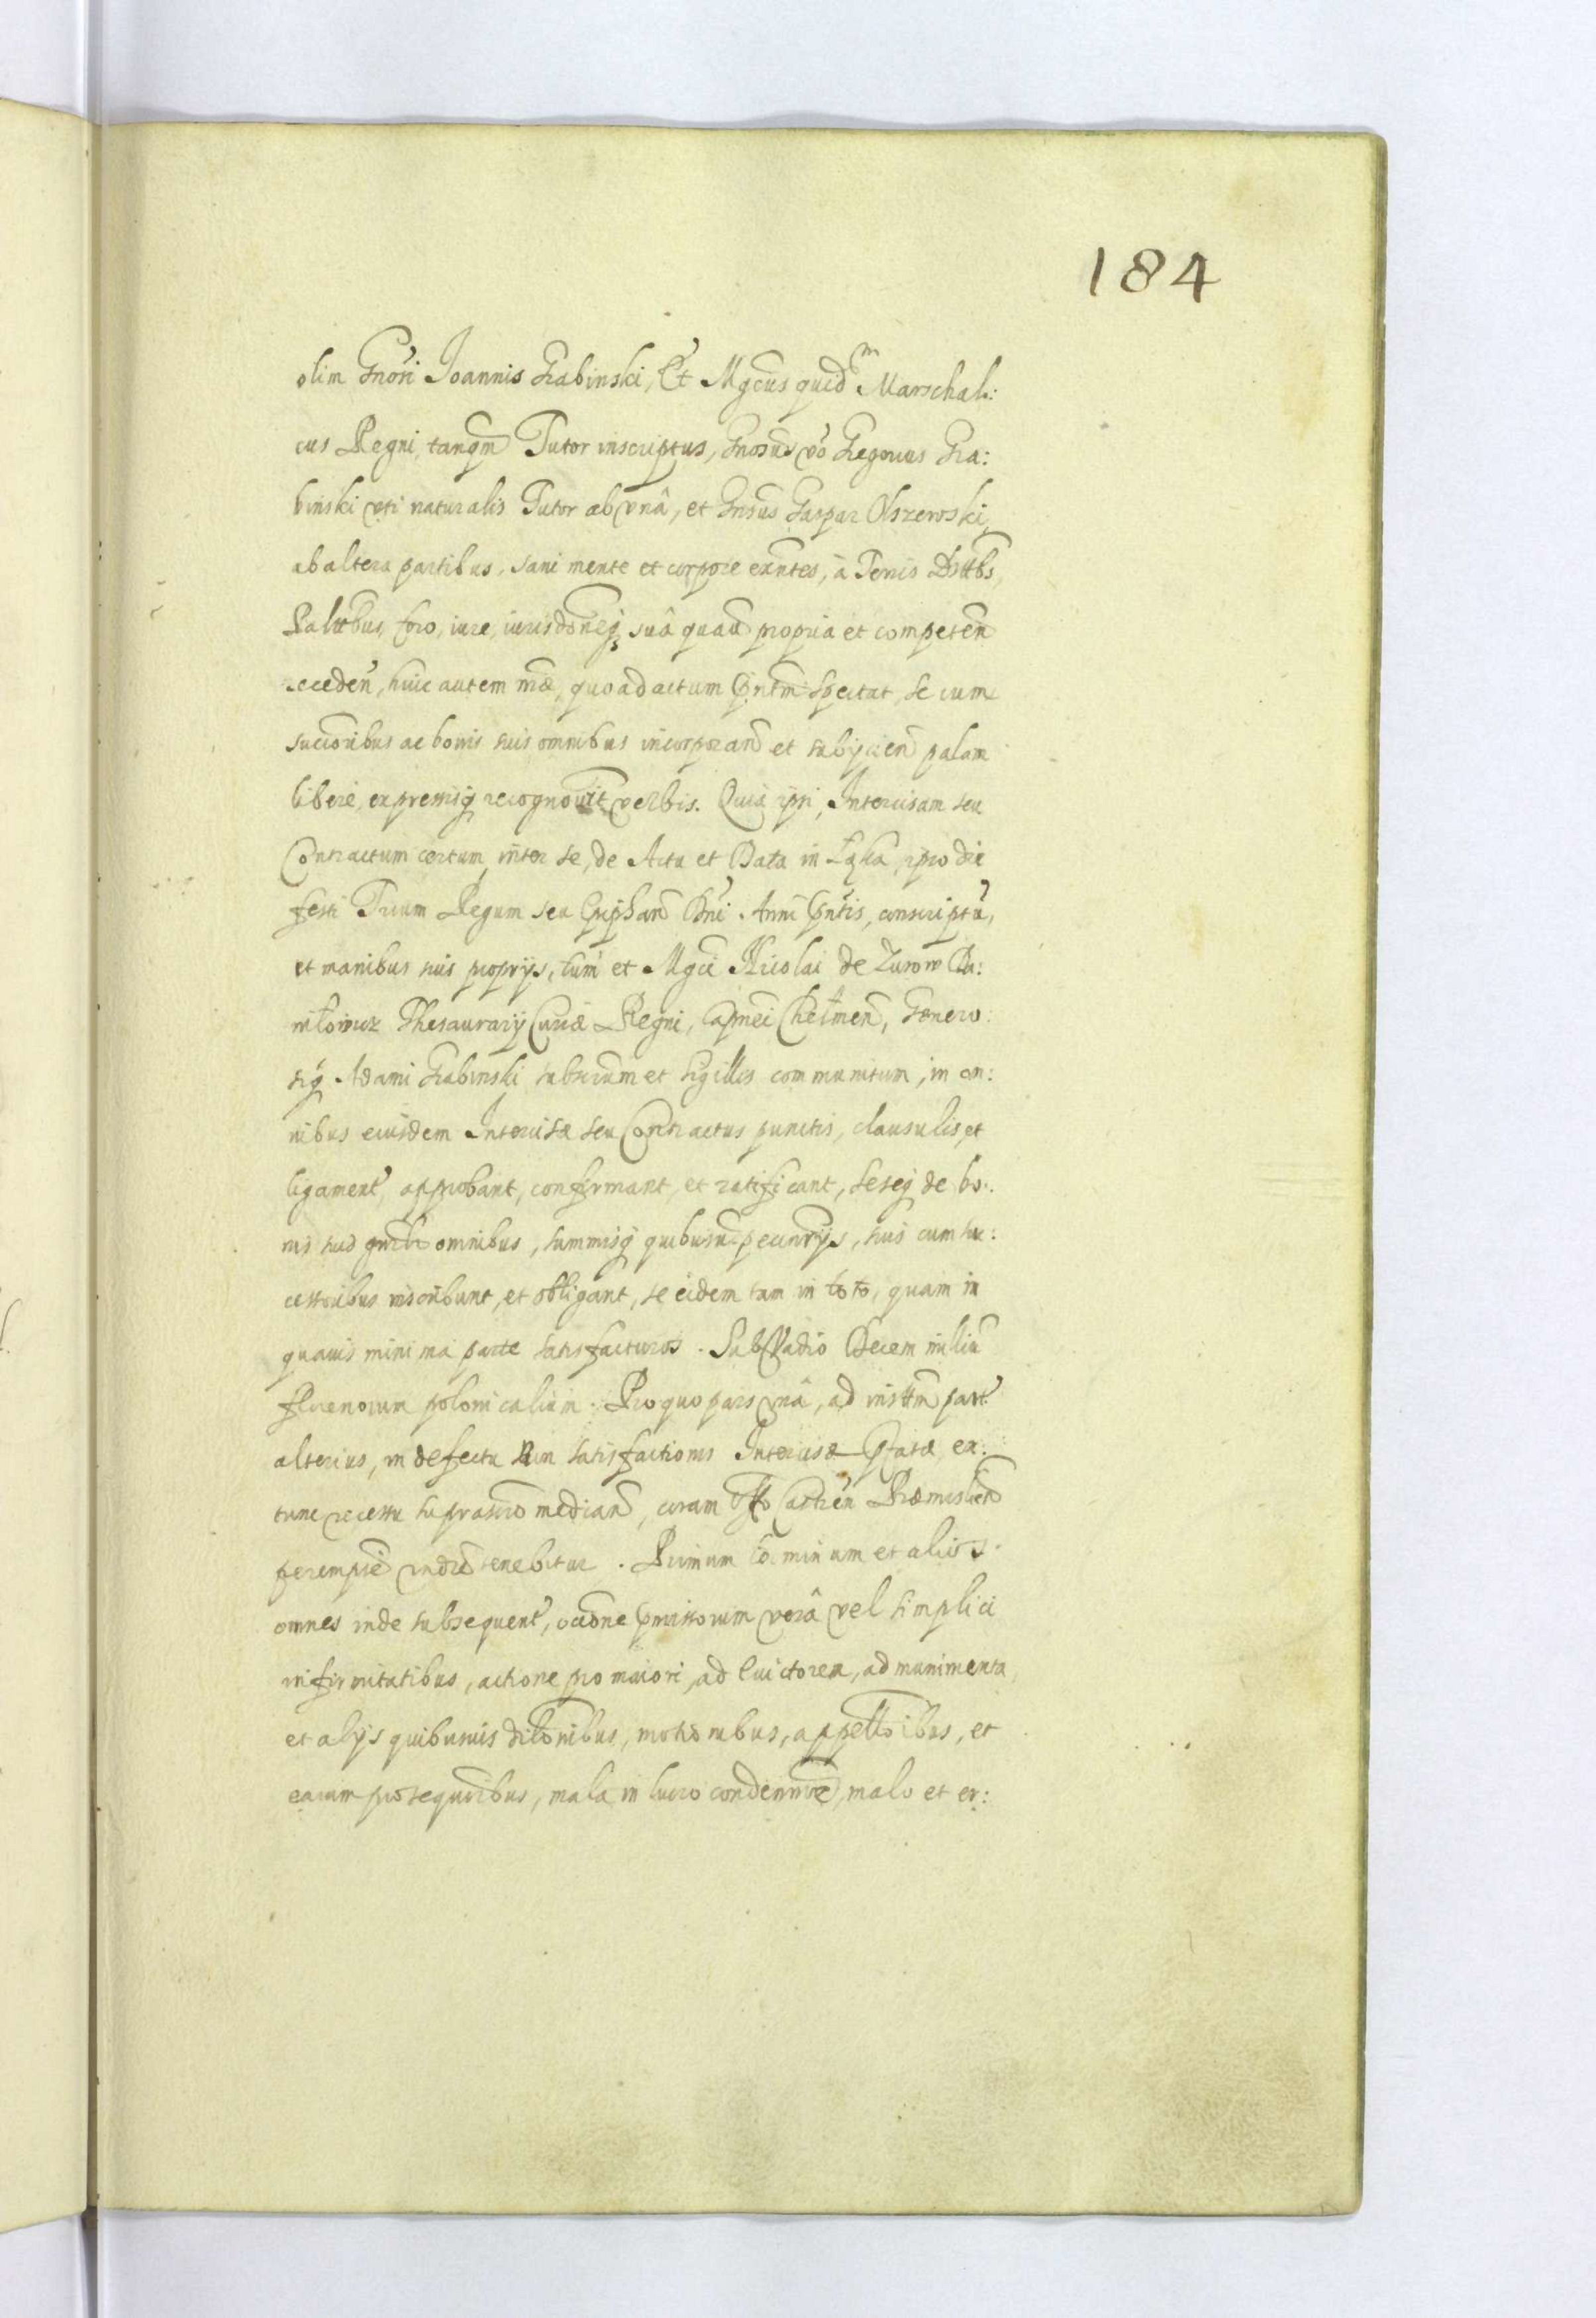 184
olim Gnosi Joannis Grabinski, Et Mgcus quidm Marschal:
cus Regni, tanqm Tutor inscriptus, Gnosus vo Gregorius Gra:
binski uti naturalis Tutor ab vnâ, et Gnsus Gaspar Olszewski,
ab altera partibus, sani mente et corpore exntes, à Terris Disttbs,
Palattbus, foro, iure, iurisdoneq suâ quavis propria et competen
receden, huic autem mae, quo ad actum pntm spectat, se cum
succoribus ac bonis suis omnibus incorporand et subijcien palam
liberè, expressisq recognouit verbis. Quia ipsi, Intercisam seu
Contractum certum, inter se, de Actu et Data in Łąka, ipso die
festi Trium Regum seu Epiphan Dni Anni pntis, conscriptu,
et manibus suis proprijs, tum et Mgci Nicolai de Zurow Da:
niłowicz Thesaurarij Curiæ Regni, Capnei Chełmen, Genero:
siq Adami Grabinski subscrium et sigillis communitum, in om:
nibus eiusdem Intercisæ seu Contractus punctis, clausulis, et
ligament, approbant, confirmant, et ratificant, seseq de bo:
nis suis gnrlr omnibus, summisq quibusuis pecunrijs, suis cum suc:
cessoribus inscribunt, et obligant, se eidem tam in toto, quam in
quauis minima parte satisfacturos. Sub Vadio Decem milium
florenorum polonicalium. Pro quo pars vnâ, ad insttm part
alterius, in defectu Non satisfactionis Intercisæ Pfatæ, ex
tunc recessu suprascro mediand, coram Offo Castren Præmislien
peremptie rndre tenebitur. Primum Terminum et alios
omnes inde subsequent, ocaone pmissorum verâ vel simplici
infirmitatibus, actione pro maiori, ad Euictorem, ad munimenta,
et alijs quibusuis dilonibus, motionibus, appellonibus, et
earum prosequonibus, mala in lucro condemnne, malo et er: